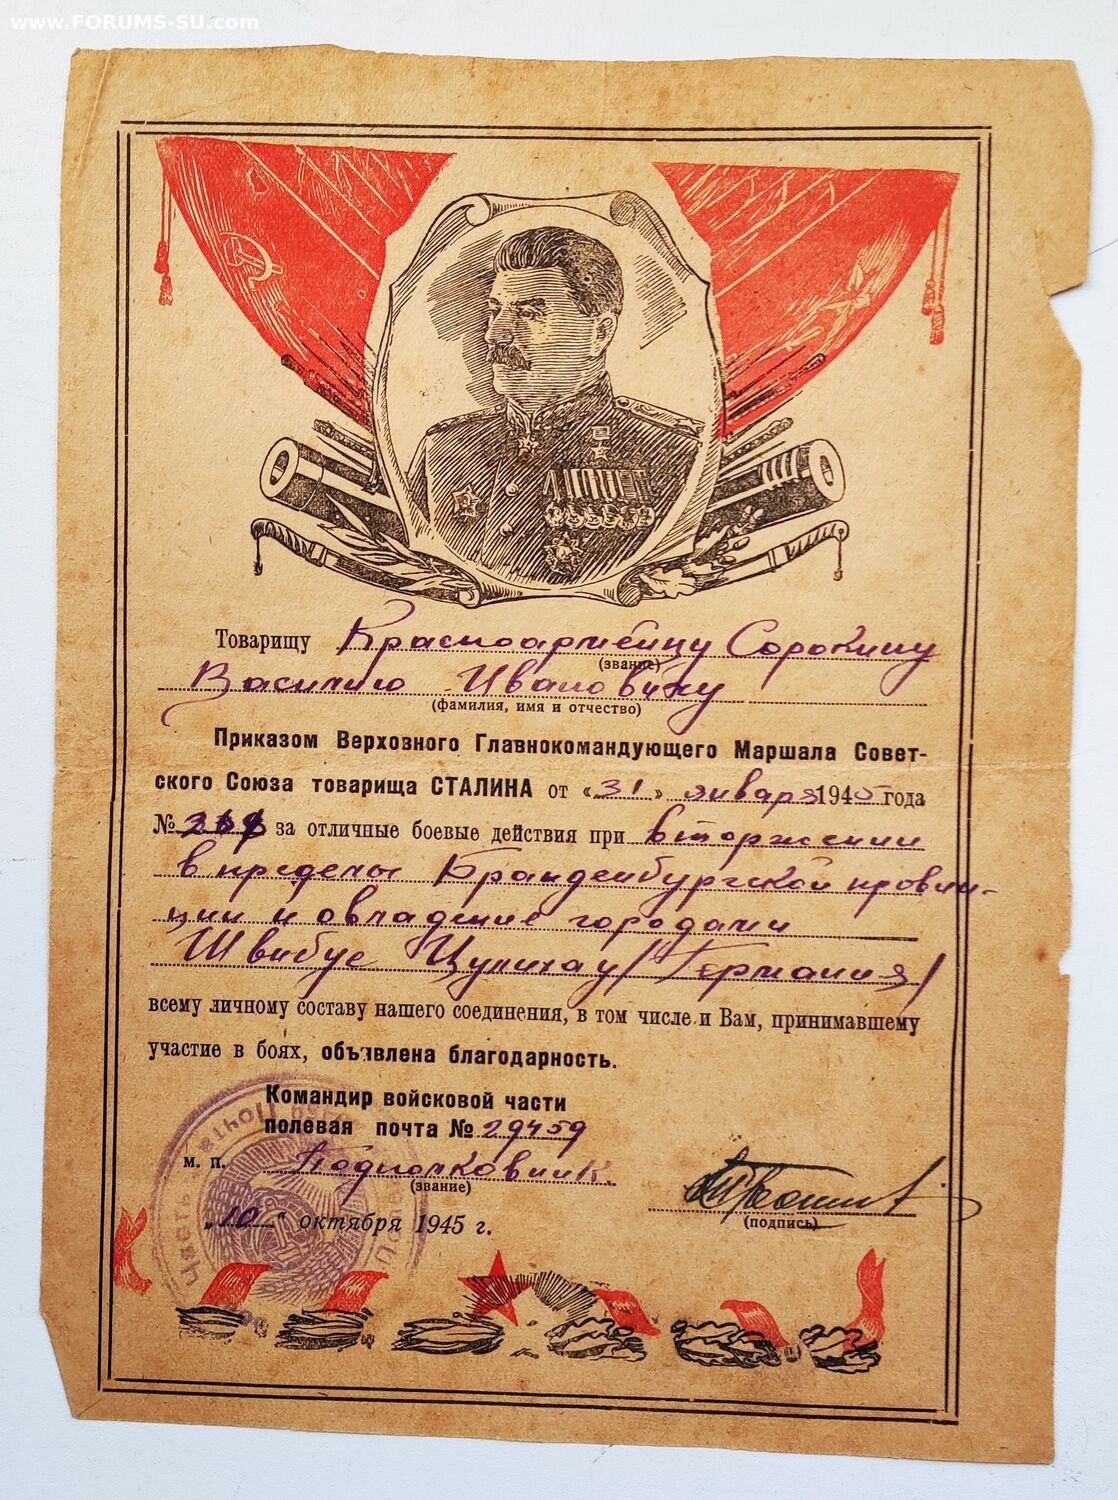 www.FORUMS-SU.com
Товарищу Красноармейцу Сорокину
(звание)
Василию Ивановичу
(фамилия, имя и отчество)
Приказом Верховного Главнокомандующего Маршала Совет-
ского Союза товарища СТАЛИНА от «31» января 1945 года
№ за отличные боевые действия при вторжении
в пределы Бранденбургской провин-
ции и овладение городами
Швибус Цулихау /Германия/
всему личному составу нашего соединения, в том числе и Вам, принимавшему
участие в боях, объявлена благодарность.
Командир войсковой части
полевая почта № 29459
м. п. Подполковник
(звание)
(подпись)
„10“ октября 1945 г.